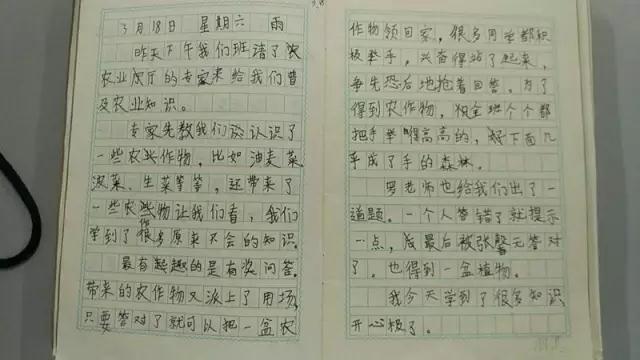 3月18日 星期六 雨
昨天下午我们班请了农
农业厅的专家来给我们普
及农业知识。
专家先教我们认识了
一些农作物,比如油麦菜
菠菜、生菜等等,还带来了
一些农作物让我们看,我们
学到了很多原来不会的知识。
最有趣的是有奖问答。
带来的农作物又派上了用场,
只要答对了就可以把一盆农
作物领回家,很多同学都积
极举手,兴奋得站了起来,
争先恐后地抢着回答。为了
得到农作物,全班个个都
把手举得高高的,下面几
乎成了手的森林。
罗老师也给我们出了一
道题。一个人答错了就提示
一点,最后被张馨元答对
了,也得到一盆植物。
我今天学到了很多知识,
开心极了。